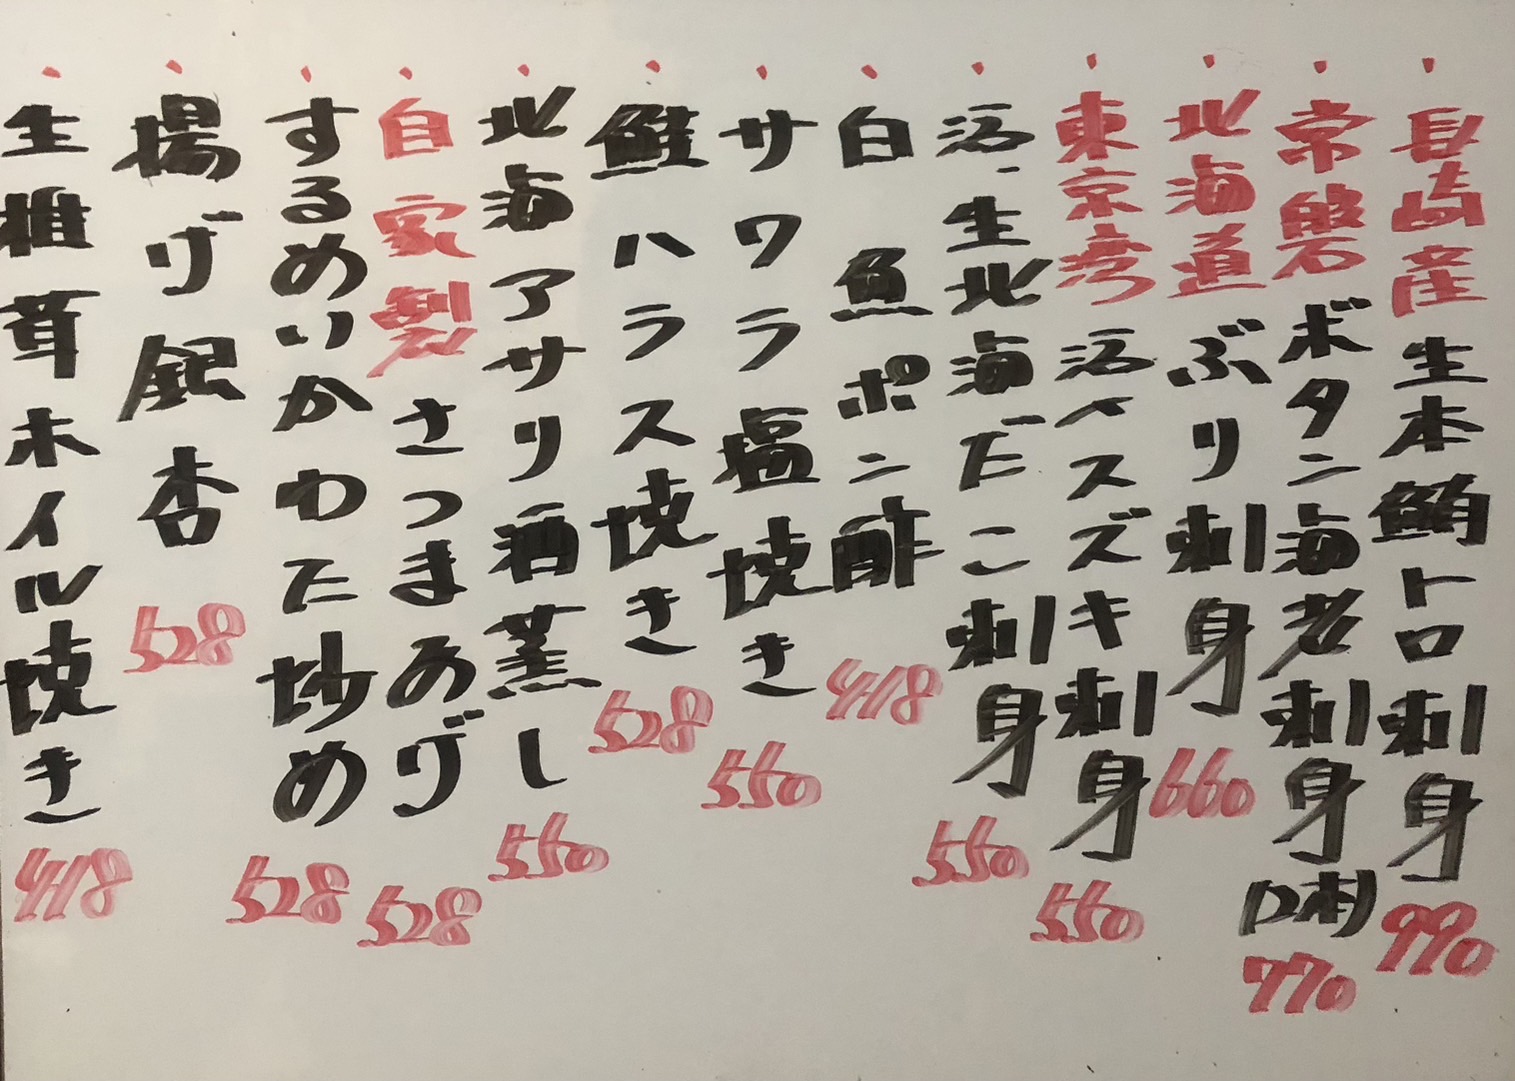 ・長崎産生本鮪トロ刺身 990
・常磐ボタン海老刺身(2本) 770
・北海道ぶり刺身 660
・東京湾活〆スズキ刺身 550
・活〆生北海だこ刺身 550
・白魚ポン酢 418
・サワラ塩焼き 550
・鮭ハラス焼き 528
・北海アサリ酒蒸し 550
・自家製さつまあげ 528
・するめいかわた炒め 528
・揚げ銀杏 528
・生椎茸ホイル焼き 418